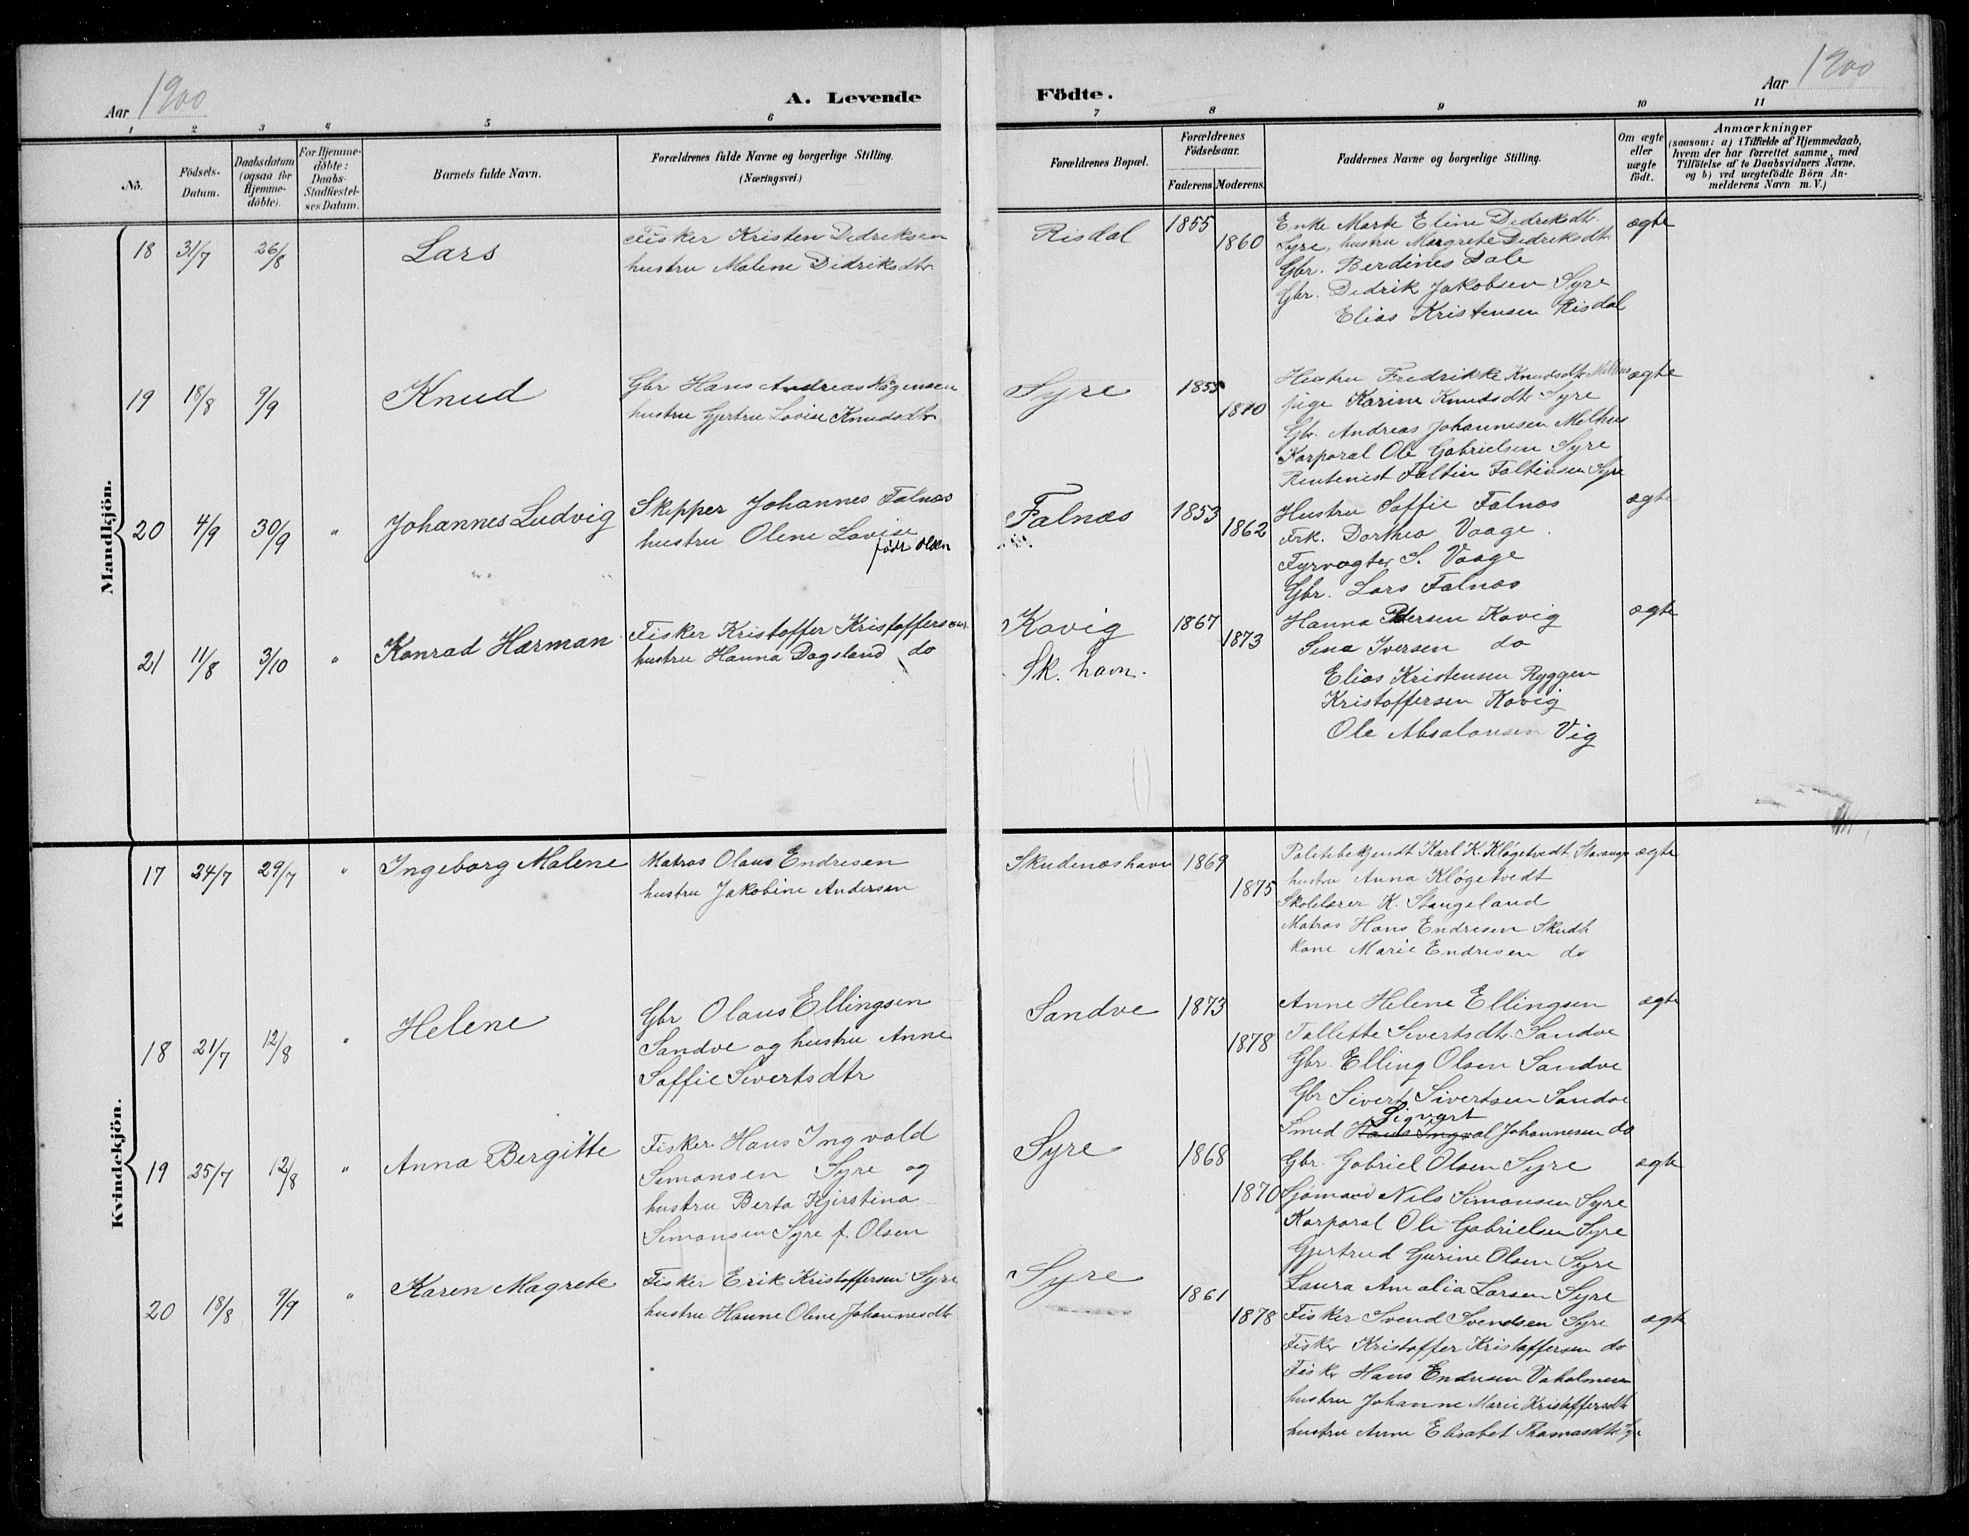 Aar 1900
A. Levende Födte.
Aar 1900
1 2 3 4 5 6 7 8 9 10 11
No.
Födsels-Datum.
Daabsdatum (ogsaa for Hjemme-döbte).
For Hjemme-döbte: Daabs-Stadfæstel-ses Datum.
Barnets fulde Navn.
Forældrenes fulde Navne og borgerlige Stilling. (Næringsvei.)
Forældrenes Bopæl.
Forældrenes Födselsaar.
Faderens. Moderens.
Faddernes Navne og borgerlige Stilling.
Om ægte eller uægte födt.
Anmærkninger
(saasom: a) i Tilfælde af Hjemmedaab, hvem der har forrettet samme, med Tilföielse af to Daabsvidners Navne. og b) ved uægtefödte Börn An-melderens Navn m. V.)
Mandkjön.
18 31/7 26/8 Lars
Fisker Kristen Didriksen
hustru Malene Didriksdtr.
Risdal 1855 1860
Enke Marte Eline Didriksdtr.
Syre, hustru Margrete Didriksdtr.
Gbr. Berdines Dale
Gbr. Didrik Jakobsen Syre
Elias Kristensen Risdal
ægte
19 18/8 9/9 Knud
Gbr Hans Andreas Hågensen
hustru Gjertru Lovise Knudsdtr.
Syre 1855 1870
Hustru Fredrikke Knudsdtr Melhus
pige Karine Knudsdtr Syre
Gbr. Andreas Johannesen Melhus
Korporal Ole Gabrielsen Syre
Rentenist Faltin Faltinsen Syre
ægte
20 4/9 30/9 " Johannes Ludvig
Skipper Johannes Falnæs
hustru Olene Lovise
født Olsen
Falnæs 1853 1862
Hustru Saffie Falnæs
Frk. Dorthea Vaage
Fyrvogter S. Vaage
Gbr. Lars Falnæs
ægte
21 11/8 3/10 " Konrad Harman
Fisker Kristoffer Kristoffersen
hustru Hanna Dagsland do
Kovig
Sk. havn.
1867 1873
Hanna Persen Kovig
Sina Iversen do
Elias Kristensen Ryggen
Kristoffersen Kovig
Ole Absalonsen Vig
ægte
Kvindekjön.
17 24/7 29/7 " Ingeborg Malene
Matros Olaus Endresen
hustru Jakobine Andersen
Skudenæshavn 1869 1875
Politibetjendt Karl K. Kløgetvedt Stavanger
hustru Anna Kløgetvedt
Skolelærer K. Stangeland
Matros Hans Endresen Skudh
kone Marie Endresen do
ægte
18 21/7 12/8 " Helene
Gbr Olaus Ellingsen
Sandve og hustru Anne
Saffie Sivertsdtr
Sandve 1873 1878
Anne Helene Ellingsen
Tallette Sivertsdtr. Sandve
Gbr. Elling Olsen Sandve
Gbr Sivert Sivertsen Sandve
Sigvart
Smed Hans Ingval Johannesen do
ægte
19 25/7 12/8 " Anna Bergitte
Fisker Hans Ingvald
Simonsen Syre og
hustru Berta Kjirstina
Simonsen Syre f. Olsen
Syre 1868 1870
Gbr. Gabriel Olsen Syre
Sjømand Nils Simonsen Syre
Korporal Ole Gabrielsen Syre
Gjertrud Gurine Olsen Syre
Laura Amalia Larsen Syre
ægte
20 18/8 9/9 " Karen Magrete
Fisker Erik Kristoffersen Syre
hustru Hanne Oline Johannesdtr
Syre 1861 1878
Fisker Svend Svendsen Syre
Fisker Kristoffer Kristoffersen do
Fisker Hans Endresen Vaholmen
hustru Johanne Marie Kristoffersdtr
hustru Anne Elisabet Thomasdtr Syre
ægte